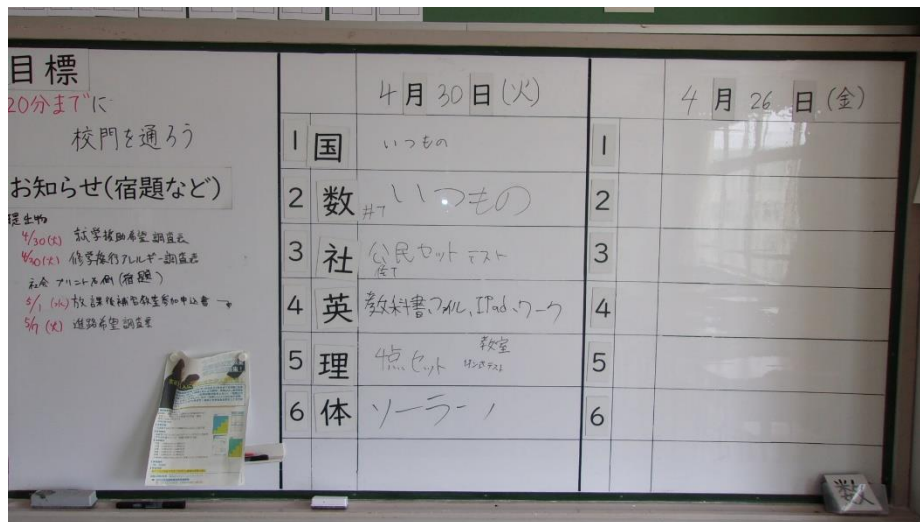 目標
20分までに
校門を通ろう
お知らせ(宿題など)
提出物
4/30(火) 就学援助希望調査表
4/30(火) 修学旅行アレルギー調査表
社会 プリント右側(宿題)
5/1(水) 放課後補習教室参加申込書
5/7(火) 進路希望調査票
4月30日(火)
1 国 いつもの
2 数 #7 いつもの
3 社 公民セット テスト
4 英 教科書、ファイル、IPad、ワーク
5 理 4点セット 教室
6 体 ソーラーノ
4月26日(金)
1
2
3
4
5
6
数